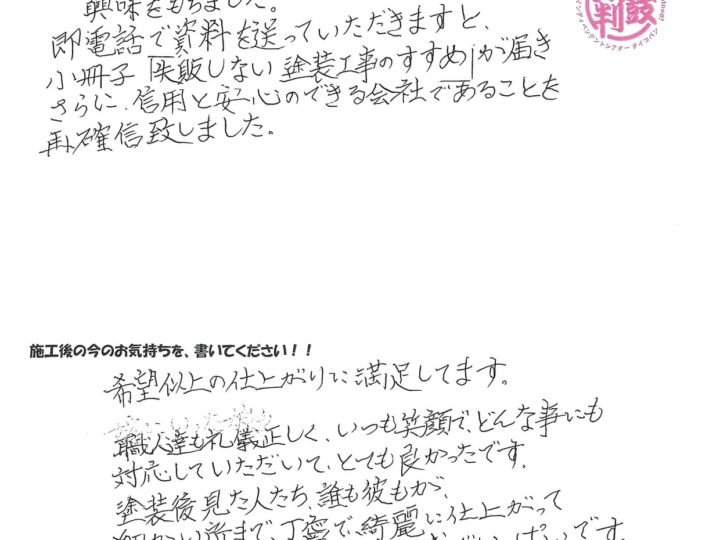 興味をもちました。
即電話で資料を送っていただきますと、
小冊子「失敗しない塗装工事のすすめ」が届き
さらに、信用と安心のできる会社であることを
再確信致しました。
太鼓判
施工後の今のお気持ちを、書いてください!!
希望以上の仕上がりに満足してます。
職人達も礼儀正しく、いつも笑顔で、どんな事にも
対応していただいて、とても良かったです。
塗装後見た人たち、誰も彼もが、
所まで、丁寧で、綺麗に仕上がって
ぱいです。